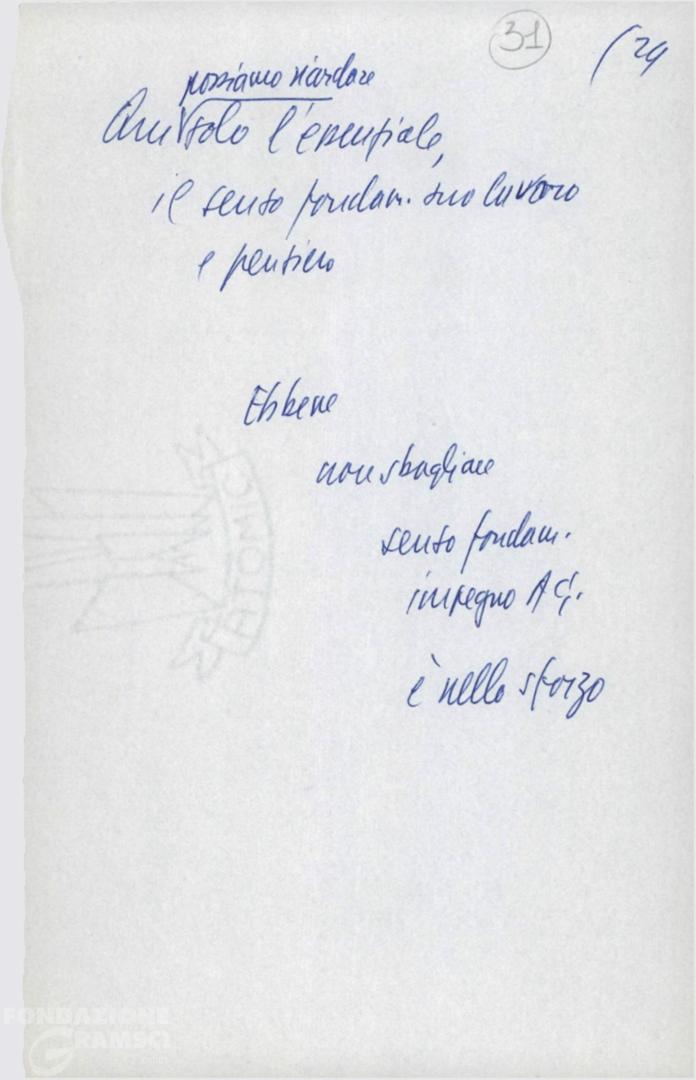 31
(24
possiamo ricordare
Qui solo l'essenziale,
il senso fondam. suo lavoro
e pensiero
Ebbene
non sbagliare
senso fondam.
impegno A G.
è nello sforzo
ATOMIC
FONDAZIONE
GRAMSCI